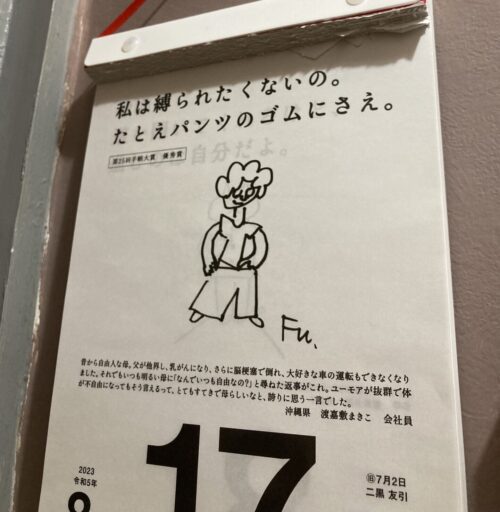 私は縛られたくないの。
たとえパンツのゴムにさえ。
第25回手紙大賞 優秀賞
自分だよ。
Fu.
昔から自由人な母。父が他界し、乳がんになり、さらに脳梗塞で倒れ、大好きな車の運転もできなくなり
ました。それでもいつも明るい母に「なんでいつも自由なの?」と尋ねた返事がこれ。ユーモアが抜群で体
が不自由になってもそう言えるって、とてもすてきで母らしいなと、誇りに思う一言でした。
沖縄県 渡嘉敷まきこ 会社員
2023
令和5年
17
旧7月2日
二黒 友引